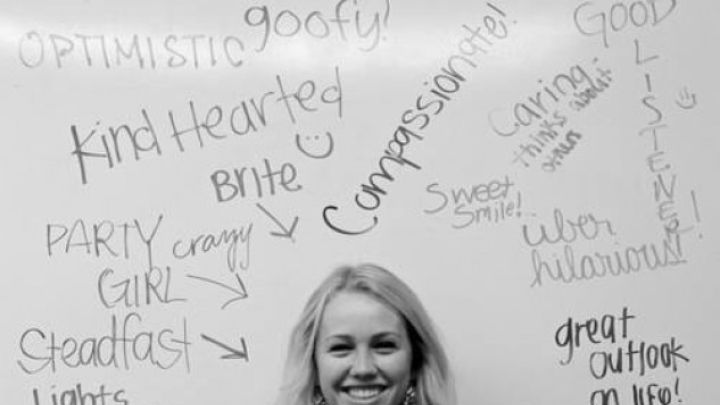 OPTIMISTIC
goofy!
Compassionate!
GOOD
LISTENER!
Caring-
thinks about
others
Kind Hearted
BRite
Sweet
Smile!
über
hilarious!
PARTY crazy
GIRL
Steadfast
Lights
great
outlook
on life!